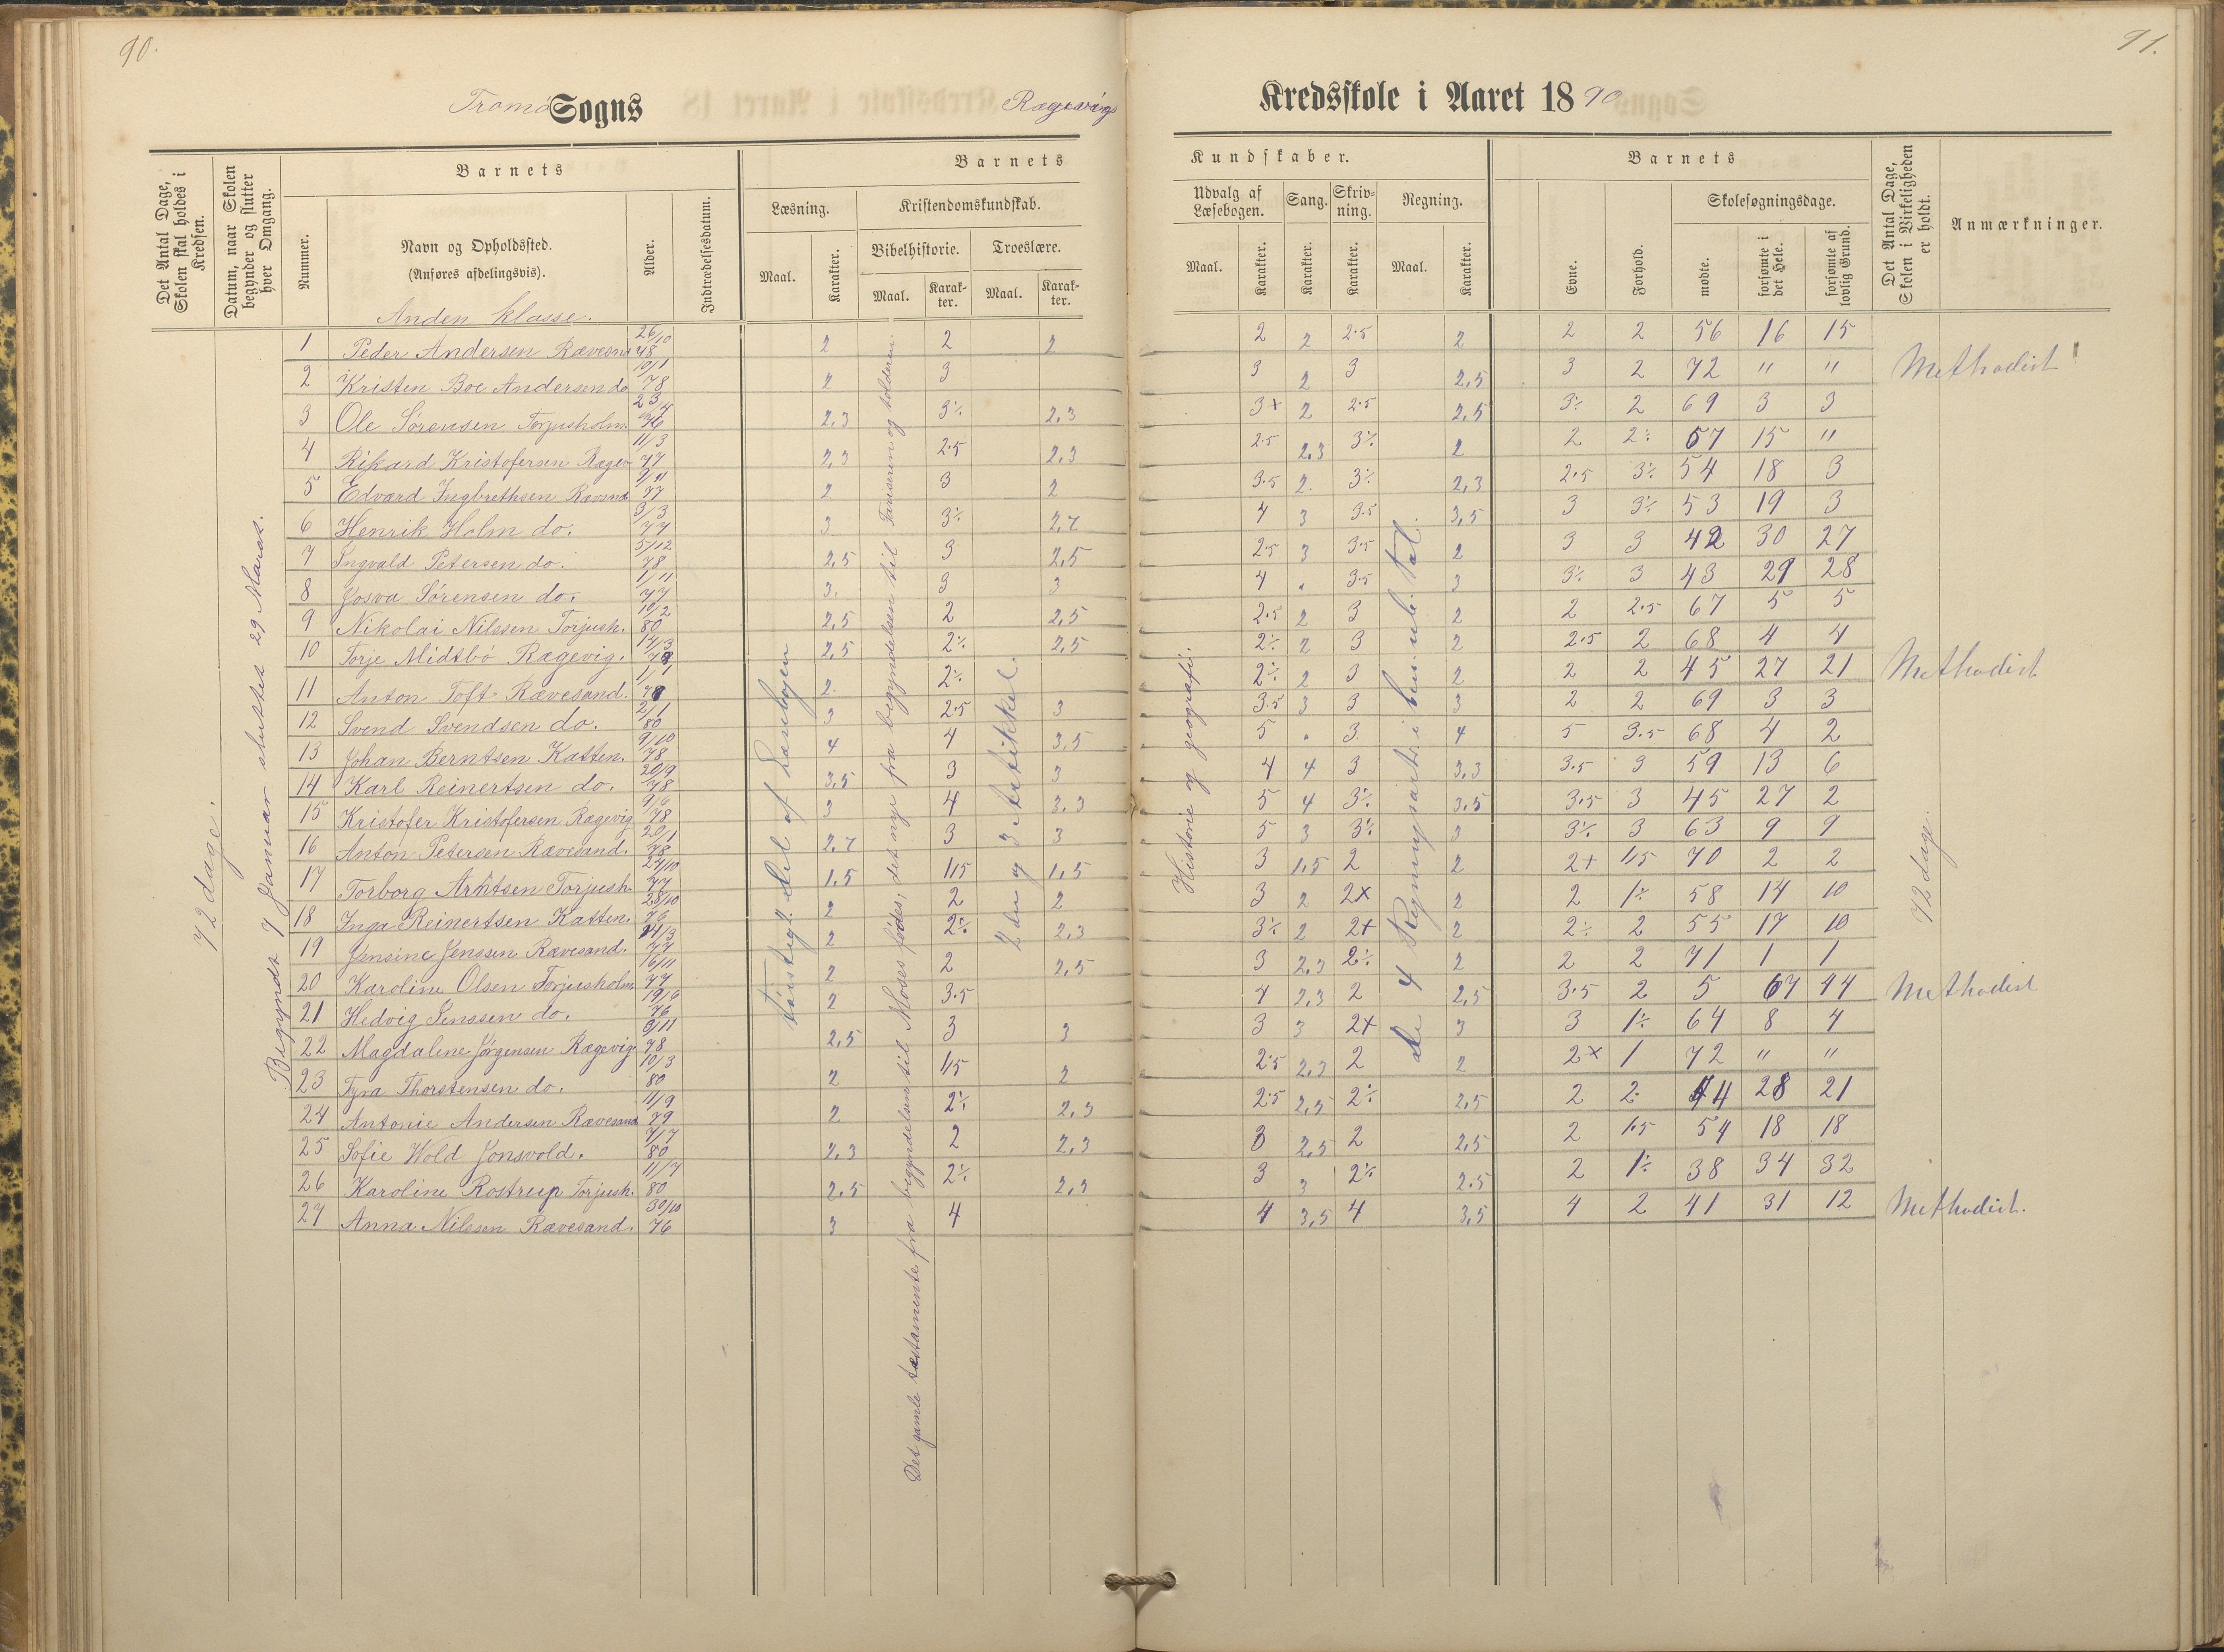 90.
91.
Tromö Sogns Ragevigs Kredsskole i Aaret 1890
Det Antal Dage, Skolen skal holdes i Kredsen.
Datum, naar Skolen begynder og slutter hver Omgang.
Barnets
Nummer.
Navn og Opholdssted.
(Anføres afdelingsvis).
Alder.
Indtrædelsesdatum.
Barnets Kundskaber.
Læsning.
Maal. Karakter.
Kristendomskundskab.
Bibelhistorie. Troeslære.
Maal. Karakter. Maal. Karakter.
Udvalg af Læsebogen. Sang. Skrivning. Regning.
Maal. Karakter. Karakter. Karakter. Maal. Karakter.
Barnets
Evne. Forhold.
Skolesøgningsdage.
mødte. forsømte i det Hele. forsømte af lovlig Grund.
Det Antal Dage, Skolen i Virkeligheden er holdt.
Anmærkninger.
72 dage.
Begyndt 7 Januar sluttet 29 Marts.
Anden klasse.
første del af Læsebogen
Det gamle testamente fra begyndelsen til Moses fødes, det nye fra begyndelsen til Farisæren og tolderen.
2den og 3 Artikkel.
Historie og geografi.
de 4 Regningsarter i ben. ub. tal.
72 dage.
1 Peder Andersen Rævesnd 26/10 78 2 2 2 2 2 2.5 2 2 2 56 16 15
2 Kristen Boe Andersen do 10/1 78 2 3 3 2 3 2,5 3 2 72 " " Methodist
3 Ole Sørensen Torjusholm 23/4 76 2,3 3÷ 2,3 3+ 2 2.5 2,5 3÷ 2 69 3 3
4 Rikard Kristofersen Ragev 11/3 77 2,3 2.5 2,3 2.5 2,3 3÷ 2 2 2÷ 57 15 "
5 Edvard Ingbrethsen Ravsnd 9/11 77 2 3 2 3.5 2. 3÷ 2,3 2.5 3÷ 54 18 3
6 Henrik Holm do. 3/3 77 3 3÷ 2,7 4 3 3.5 3,5 3 3÷ 53 19 3
7 Ingvald Petersen do. 5/12 78 2,5 3 2,5 2.5 3 3.5 2 3 3 42 30 27
8 Josva Sørensen do. 1/11 77 3. 3 3 4 . 3.5 3 3÷ 3 43 29 28
9 Nikolai Nilssen Torjush. 10/2 80 2,5 2 2,5 2.5 2 3 2 2 2.5 67 5 5
10 Torje Midtbö Ragevig. 14/3 78 2,5 2÷ 2,5 2÷ 2 3 2 2.5 2 68 4 4
11 Anton Toft Rævesand. 1/1 78 2 2÷ 2÷ 2 3 2 2 2 45 27 21 Methodist
12 Svend Svendsen do. 2/1 80 3 2.5 3 3.5 3 3 3 2 2 69 3 3
13 Johan Berntsen Katten. 9/10 78 4 4 3,5 5 . 3 4 5 3.5 68 4 2
14 Karl Reinertsen do. 20/9 78 3,5 3 3 4 4 3 3,3 3.5 3 59 13 6
15 Kristofer Kristofersen Ragevig 9/6 78 3 4 3,3 5 4 3÷ 3,5 3.5 3 45 27 2
16 Anton Petersen Rævesand. 20/1 78 2,7 3 3 5 3 3÷ 3 3÷ 3 63 9 9
17 Torborg Arntsen Torjush 24/10 77 1,5 1,5 1,5 3 1,5 2 2 2+ 1,5 70 2 2
18 Inga Reinertsen Katten. 28/10 76 2 2 2 3 2 2x 2 2 1÷ 58 14 10
19 Jensine Jenssen Rævesand. 14/3 77 2 2÷ 2,3 3÷ 2 2+ 2 2÷ 2 55 17 10
20 Karoline Olsen Torjusholm 16/11 77 2 2 2,5 3 2,3 2÷ 2 2 2 71 1 1
21 Hedvig Jenssen do. 19/6 76 2 3.5 4 2,3 2 2,5 3.5 2 5 67 44 Methodist
22 Magdalene Jørgensen Ragevig 9/11 78 2,5 3 3 3 3 2+ 3 3 1÷ 64 8 4
23 Tyra Thorstensen do. 10/3 80 2 1,5 2 2.5 2,3 2 2 2x 1 72 " "
24 Antonie Andersen Rævesand 11/9 79 2 2÷ 2,3 2.5 2,5 2÷ 2,5 2 2. 44 28 21
25 Sofie Wold Jonsvold. 7/7 80 2,3 2 2,3 3 2,5 2 2,5 2 1.5 54 18 18
26 Karoline Rostrup Torjush. 11/7 80 2,5 2÷ 2,3 3 3 2÷ 2.5 2 1÷ 38 34 32
27 Anna Nilssen Rævesand. 30/10 76 3 4 4 3,5 4 3,5 4 2 41 31 12 Methodist.